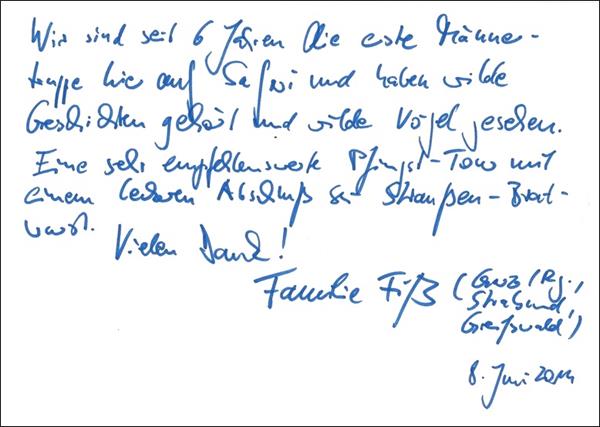 Wir sind seit 6 Jahren die erste Männer-
truppe hier auf Safari und haben wilde
Geschichten gehört und wilde Vögel gesehen.
Eine sehr empfehlenswerte Pfingst-Tour mit
einem leckeren Abschluß bei Straußen-Brat-
wurst.
Vielen Dank!
Familie Fiß (Garz/Rg.,
Stralsund,
Greifswald)
8. Juni 2014